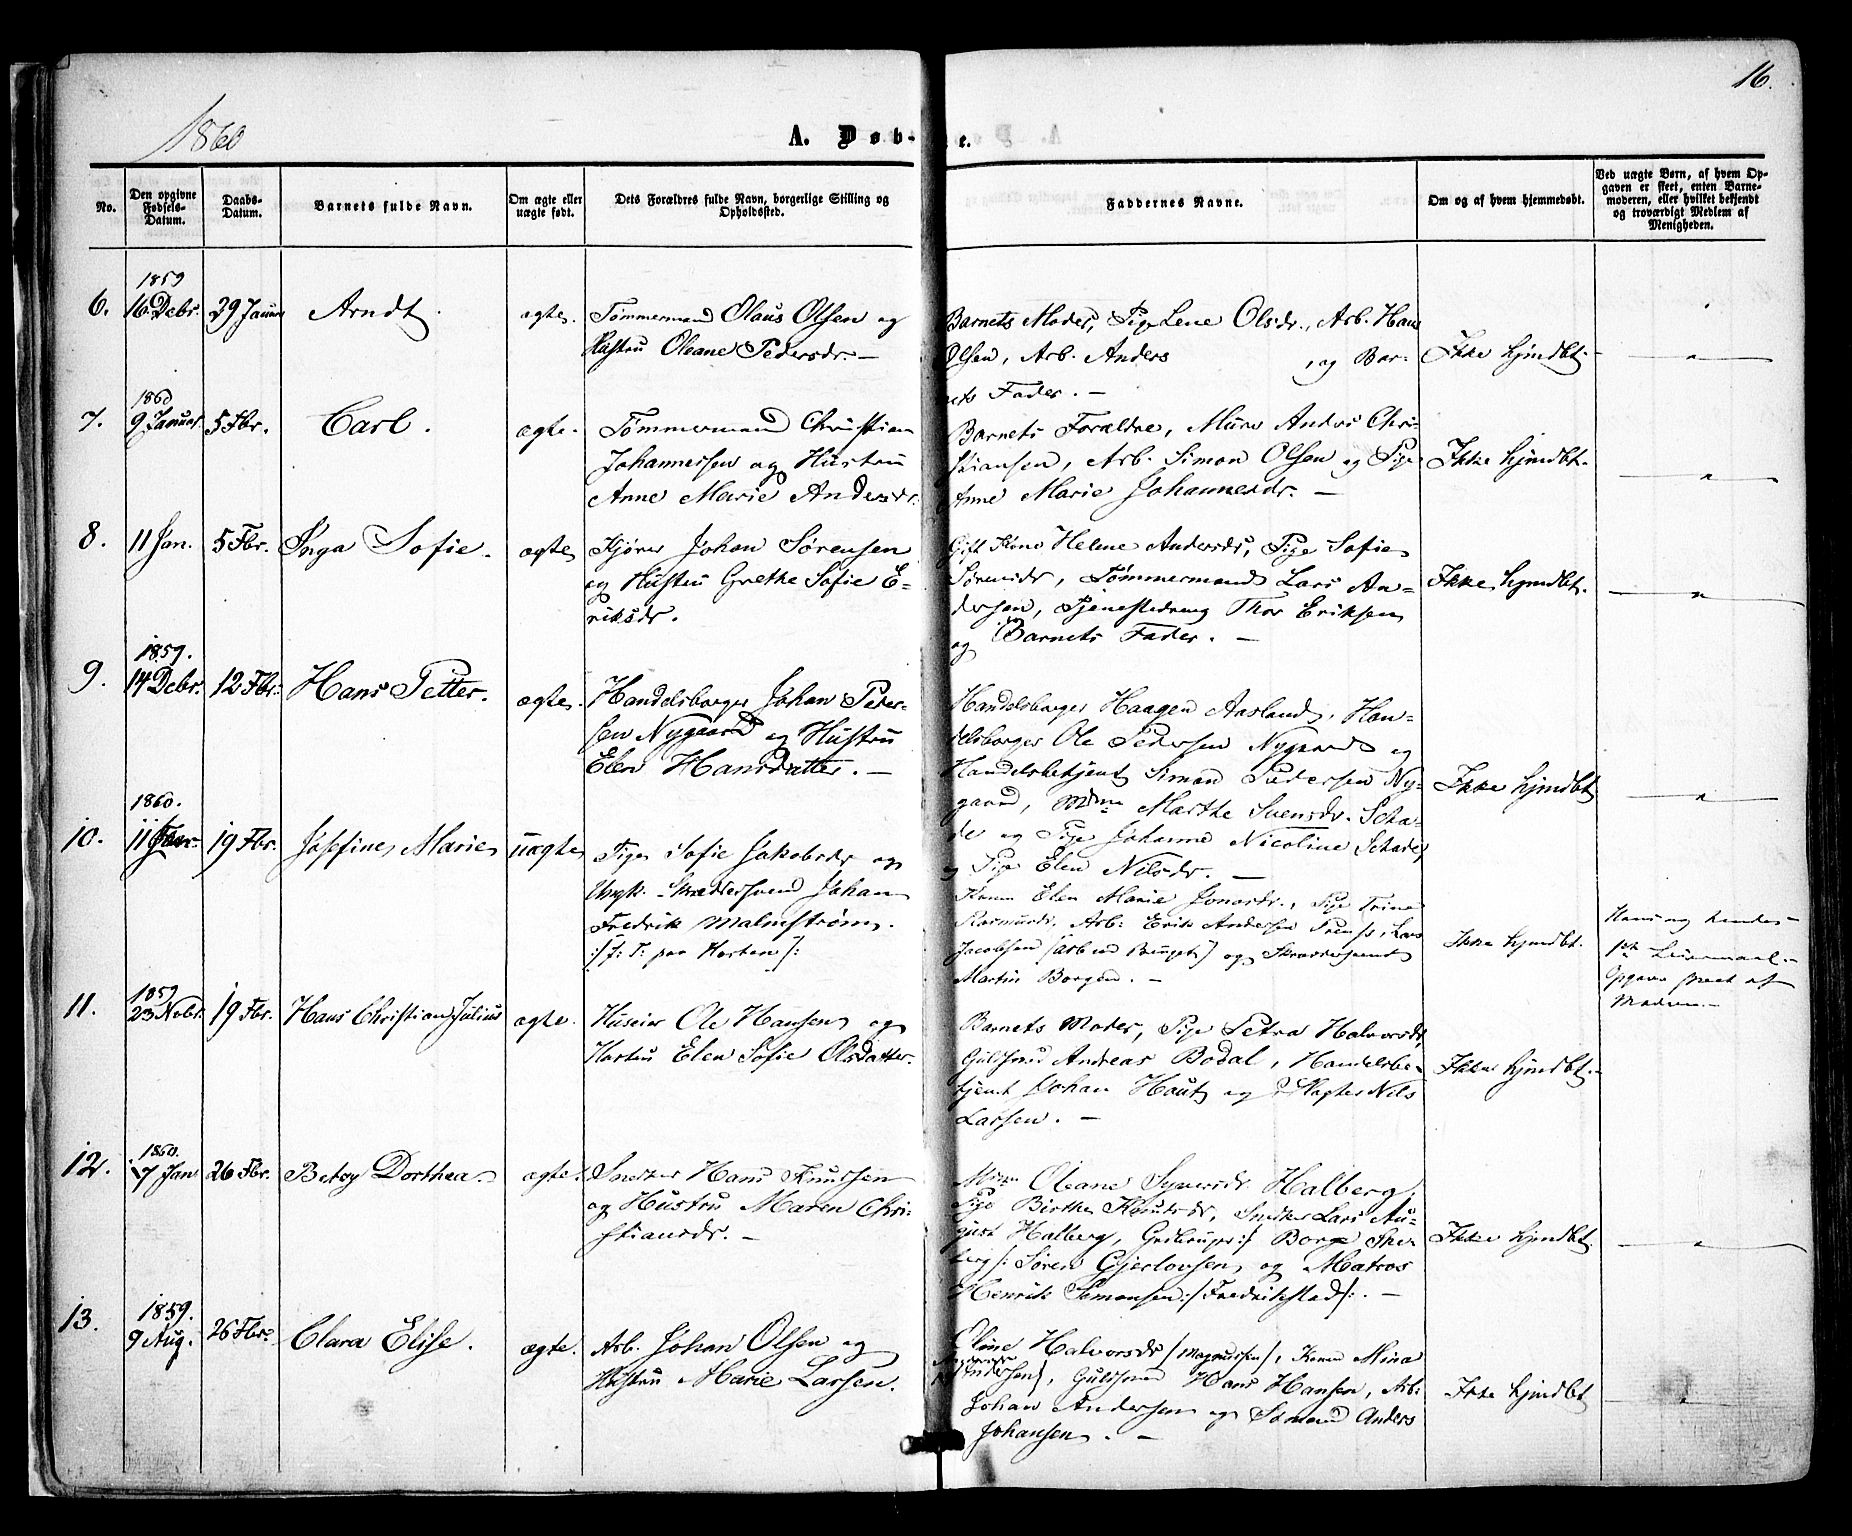 16.
1860
A. Døb-te.
No.
Den opgivne Fødsels-Datum.
Daabs-Datum.
Barnets fulde Navn.
Om ægte eller uægte født.
Dets Forældres fulde Navn, borgerlige Stilling og Opholdssted.
Faddernes Navne.
Om og af hvem hjemmedøbt.
Ved uægte Børn, af hvem Opgaven er skeet, enten Barnemoderen, eller hvilket bekjendt og troværdigt Medlem af Menigheden.
6.
1859
16 Debr.
29 Januar
Arndt.
ægte.
Tømmermand Olaus Olsen og
Hustru Oleane Pedersdr. —
Barnets Moder, Pige Lene Olsdr., Arb. Hans
Olsen, Arb. Anders , og Bar-
nets Fader. —
Ikke hjmdbt.
"
7.
1860
9 Januar.
5 Fbr.
Carl.
ægte.
Tømmermand Christian
Johannessen og Hustru
Anne Marie Andersdr.
Barnets Forældre, Murer Anders Chri-
stiansen, Arb. Simon Olsen og Pige
Anne Marie Johannesdr. —
Ikke hjmdbt.
"
8.
11 Jan.
5 Fbr.
Inga Sofie.
ægte
Kjører Johan Sørensen
og Hustru Grethe Sofie E-
riksdr.
Gift Kone Helene Andersdr, Pige Sofie
Sørensdr, Tømmermand Lars An-
dersen, Tjenestedreng Thor Eriksen
og Barnets Fader. —
Ikke hjmdbt.
"
9.
1859.
14 Debr.
12 Fbr.
Hans Petter.
ægte.
Handelsborger Johan Peder-
sen Nygaard og Hustru
Elen Hansdatter. —
Handelsborger Haagen Aasland, Han-
delsborger Ole Pedersen Nygaard og
Handelsbetjent Simon Pedersen Ny-
gaard, Mdme Marthe Svensdr. Scha-
de og Pige Johanne Nicoline Schade
og Pige Elen Nilsdr. —
Ikke hjmdbt
"
10.
1860.
11 Jan.
19 Fbr.
Josefine Marie
uægte
Pige Sofie Jakobsdr og
Ungk. Skræddersvend Johan
Fredrik Malmstrøm.
:/f: T: paa Horten/:
Kone Elen Marie Jonasdr., Pige Trine
Rasmusdr, Arb: Erik Andersen , Lars
Jacobsen og Skræddersvend
Martin Borgen. —
Ikke hjmdbt.
Hans og hendes
1ste Leiermaal.
Opgave skeet af
Moderen. —
11.
1859
23 Nobr.
19 Fbr.
Hans Christian Julius
ægte.
Huseier Ole Hansen og
Hustru Elen Sofie Olsdatter.
Barnets Moder, Pige Petra Halvorsdr,
Guldsmed Andreas Bodal, Handelsbe-
tjent Johan Haut og Slagter Nils
Larsen. —
Ikke hjmdbt.
12.
1860.
7 Jan
26 Fbr.
Betsy Dorthea.
ægte.
Snedker Hans Knutsen
og Hustru Maren Chri-
stiansdr. —
Oleane Syversdr Halberg,
Pige Birthe Knutsdr, Snedker Lars Au-
gust Halberg, Borge
Søren Gjerlovsen og Matros
Henrik Simonsen :/Fredrikstad/:. —
Ikke hjmdbt.
"
13.
1859.
9 Aug.
26 Fbr.
Clara Elise.
ægte.
Arb. Johan Olsen og
Hustru Marie Larsen.
Eline Halvorsdr /Magnussen/, Kone Mina
Andersen, Guldsmed Hans Hansen, Arb:
Johan Andersen og Sømand Anders
Johansen. —
Ikke hjmdbt
"